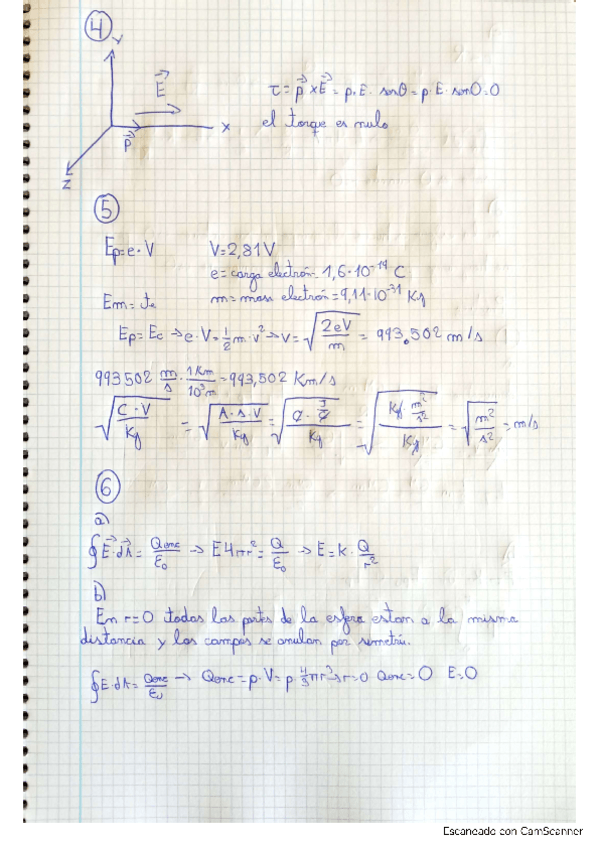 ④
Y
E⃗
p⃗
X
Z
τ = p⃗ x E⃗ = p·E· senθ = p·E· sen0 = 0
el torque es nulo
⑤
Ep = e · V V = 2,81 V
e = carga electrón = 1,6·10⁻¹⁹ C
Em = cte m = masa electrón = 9,11·10⁻³¹ Kg
Ep = Ec → e·V = 1/2 m·v² → v = √(2eV/m) = 993.502 m/s
993502 m/s · 1 Km/10³m = 993,502 Km/s
√(C·V/Kg) = √(A·s·V/Kg) = √(C·J/C/Kg) = √(Kg m²/s²/Kg) = √(m²/s²) = m/s
⑥
a)
∮E⃗·dA⃗ = Qenc/ε₀ → E4πr² = Q/ε₀ → E = k·Q/r²
b)
En r=0 todas las partes de la esfera estan a la misma
distancia y los campos se anulan por simetría.
∮E·dA = Qenc/ε₀ → Qenc = ρ·V = ρ·4/3πr³ → r=0 Qenc = 0 E=0
Escaneado con CamScanner